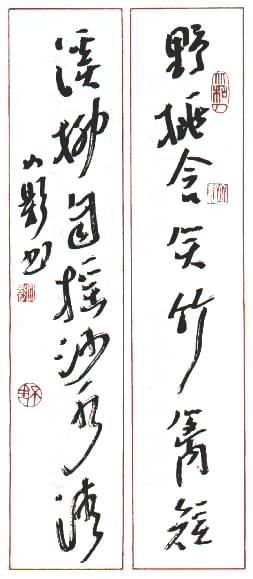 野桃含笑竹篱短
溪柳自摇沙水清